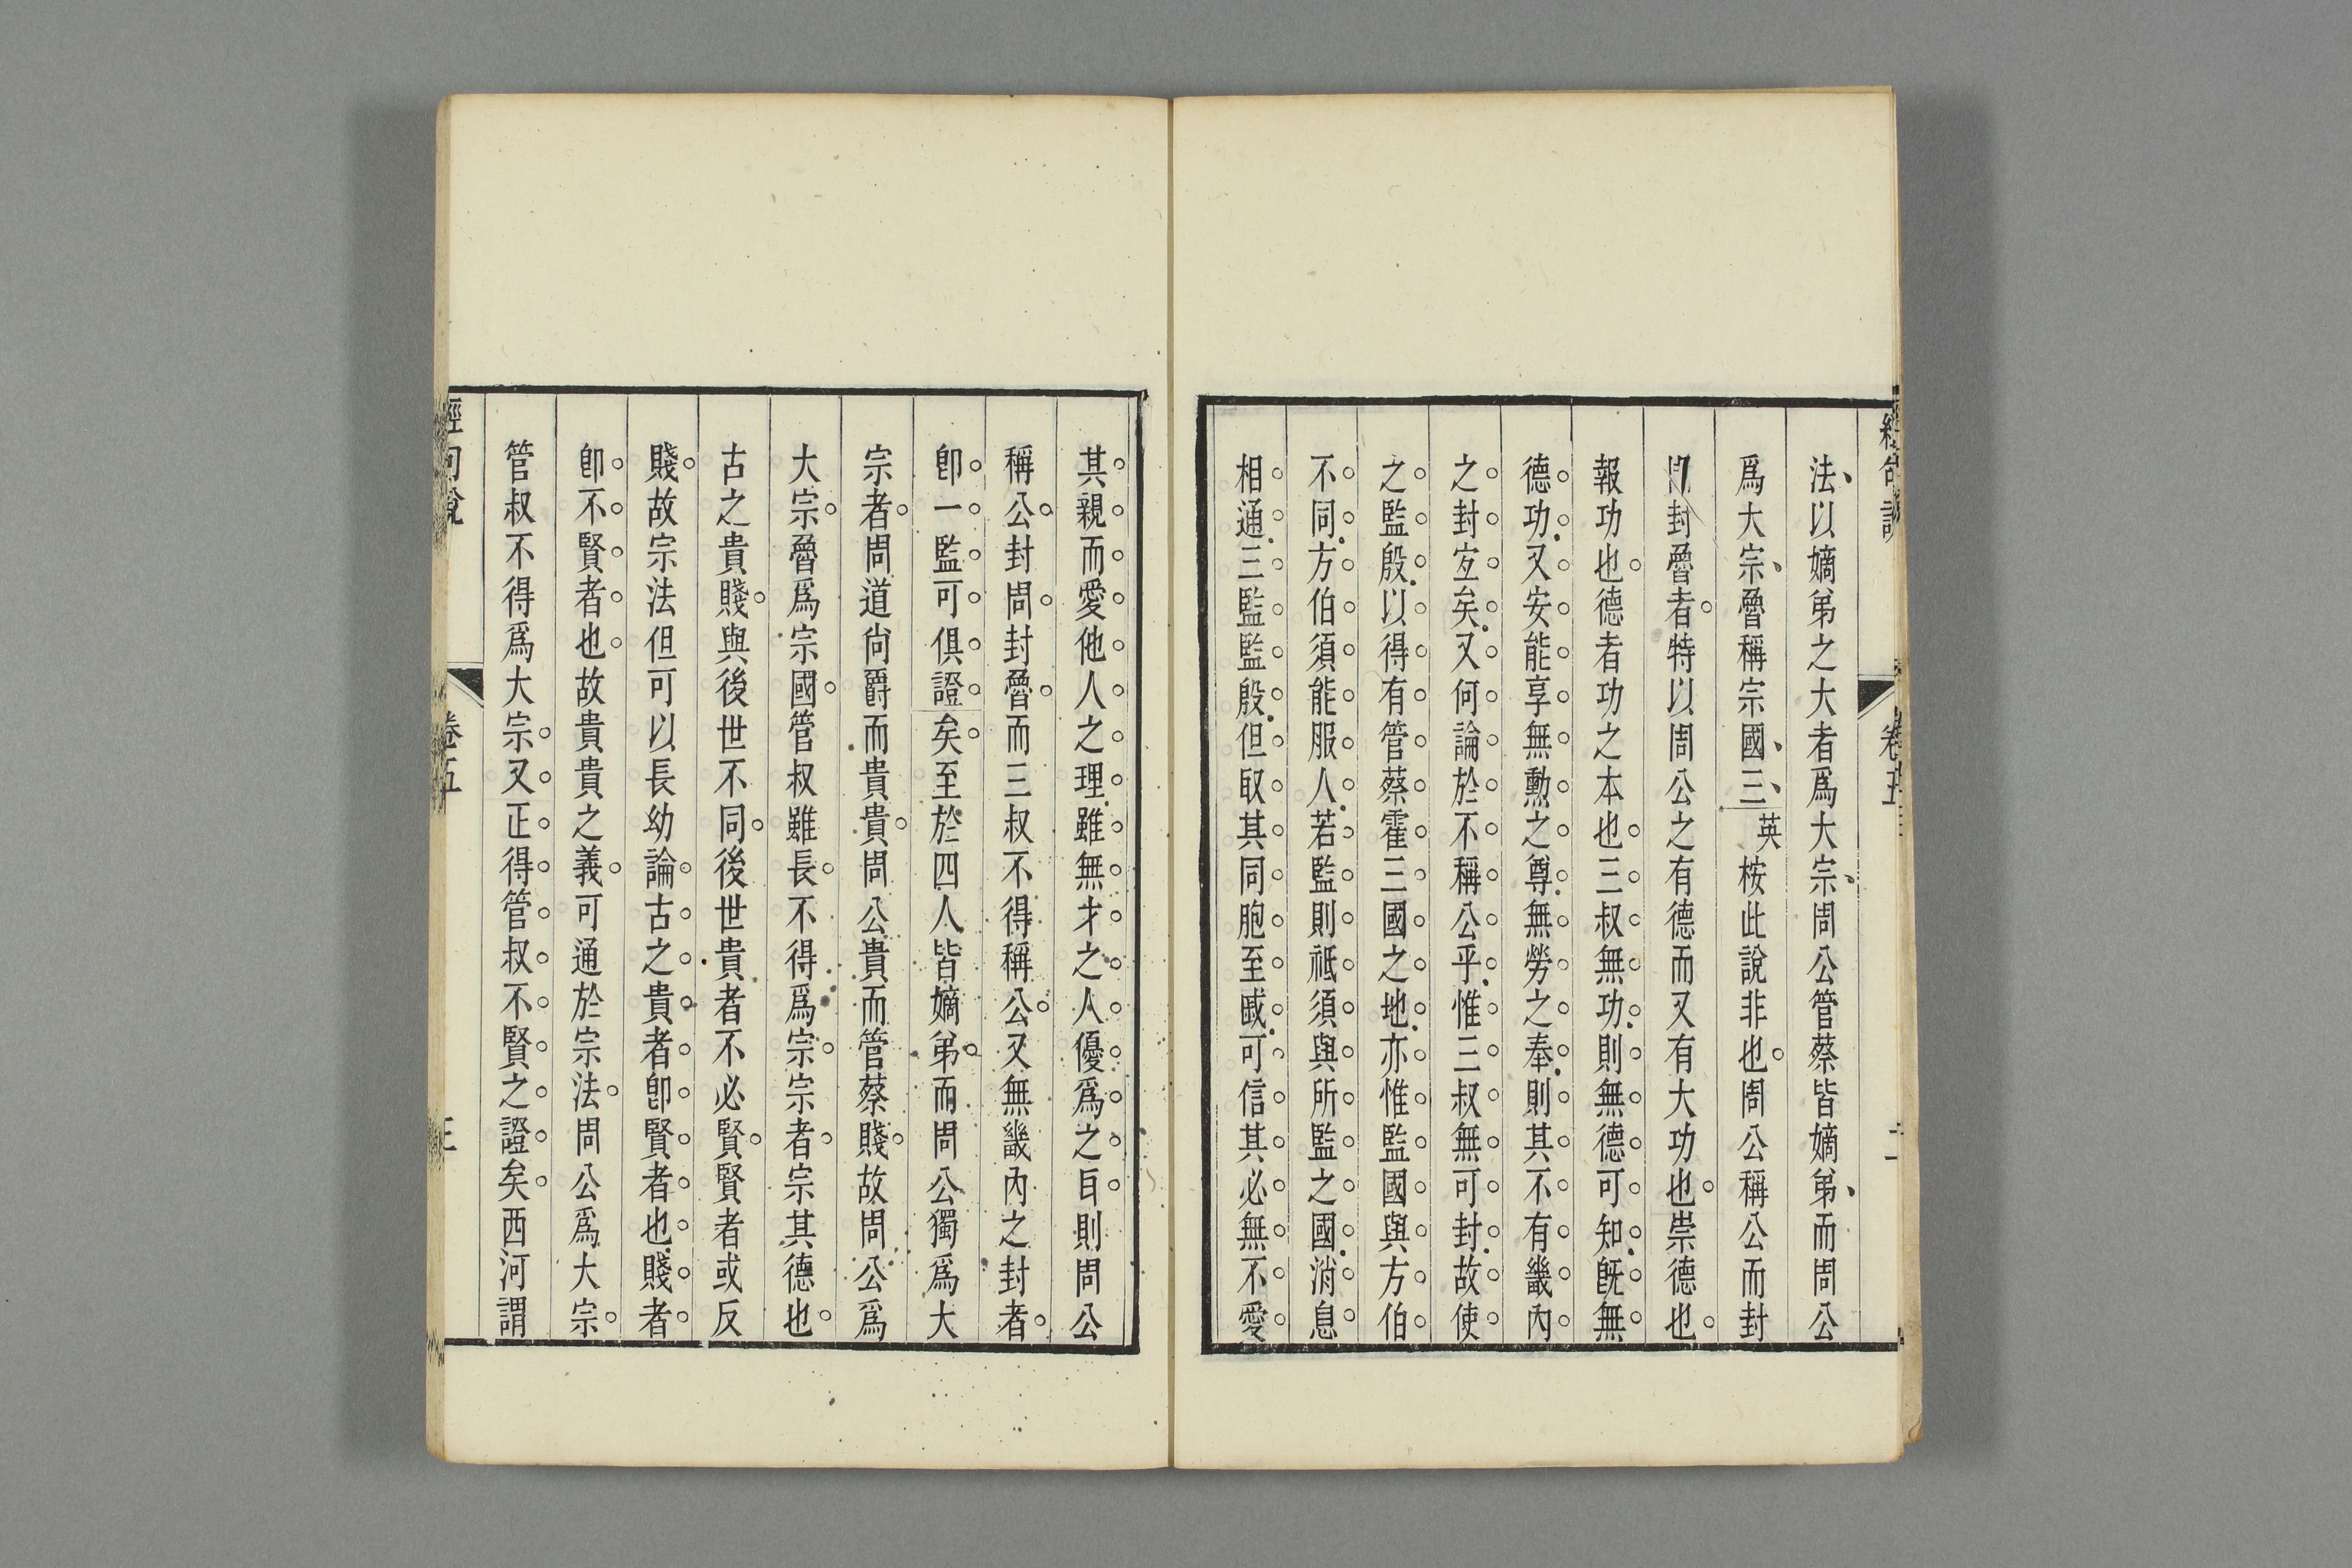 法以嫡弟之大者爲大宗周公管蔡皆嫡弟而周公
爲大宗魯稱宗國三英桉此說非也周公稱公而封
封魯者特以周公之有德而又有大功也崇德也
報功也德者功之本也三叔無功則無德可知旣無
德功又安能享無勳之尊無勞之奉則其不有畿內
之封宐矣又何論於不稱公乎惟三叔無可封故使
之監殷以得有管蔡霍三國之地亦惟監國與方伯
不同方伯須能服人若監則祗須與所監之國消息
相通三監監殷但取其同胞至戚可信其必無不愛
其親而愛他人之理雖無才之人優爲之㠯則周公
稱公封周封魯而三叔不得稱公又無畿內之封者
卽一監可俱證矣至於四人皆嫡弟而周公獨爲大
宗者周道尙爵而貴貴周公貴而管蔡賤故周公爲
大宗魯爲宗國管叔雖長不得爲宗宗者宗其德也
古之貴賤與後世不同後世貴者不必賢賢者或反
賤故宗法但可以長幼論古之貴者卽賢者也賤者
卽不賢者也故貴貴之義可通於宗法周公爲大宗
管叔不得爲大宗又正得管叔不賢之證矣西河謂
經句說
卷五